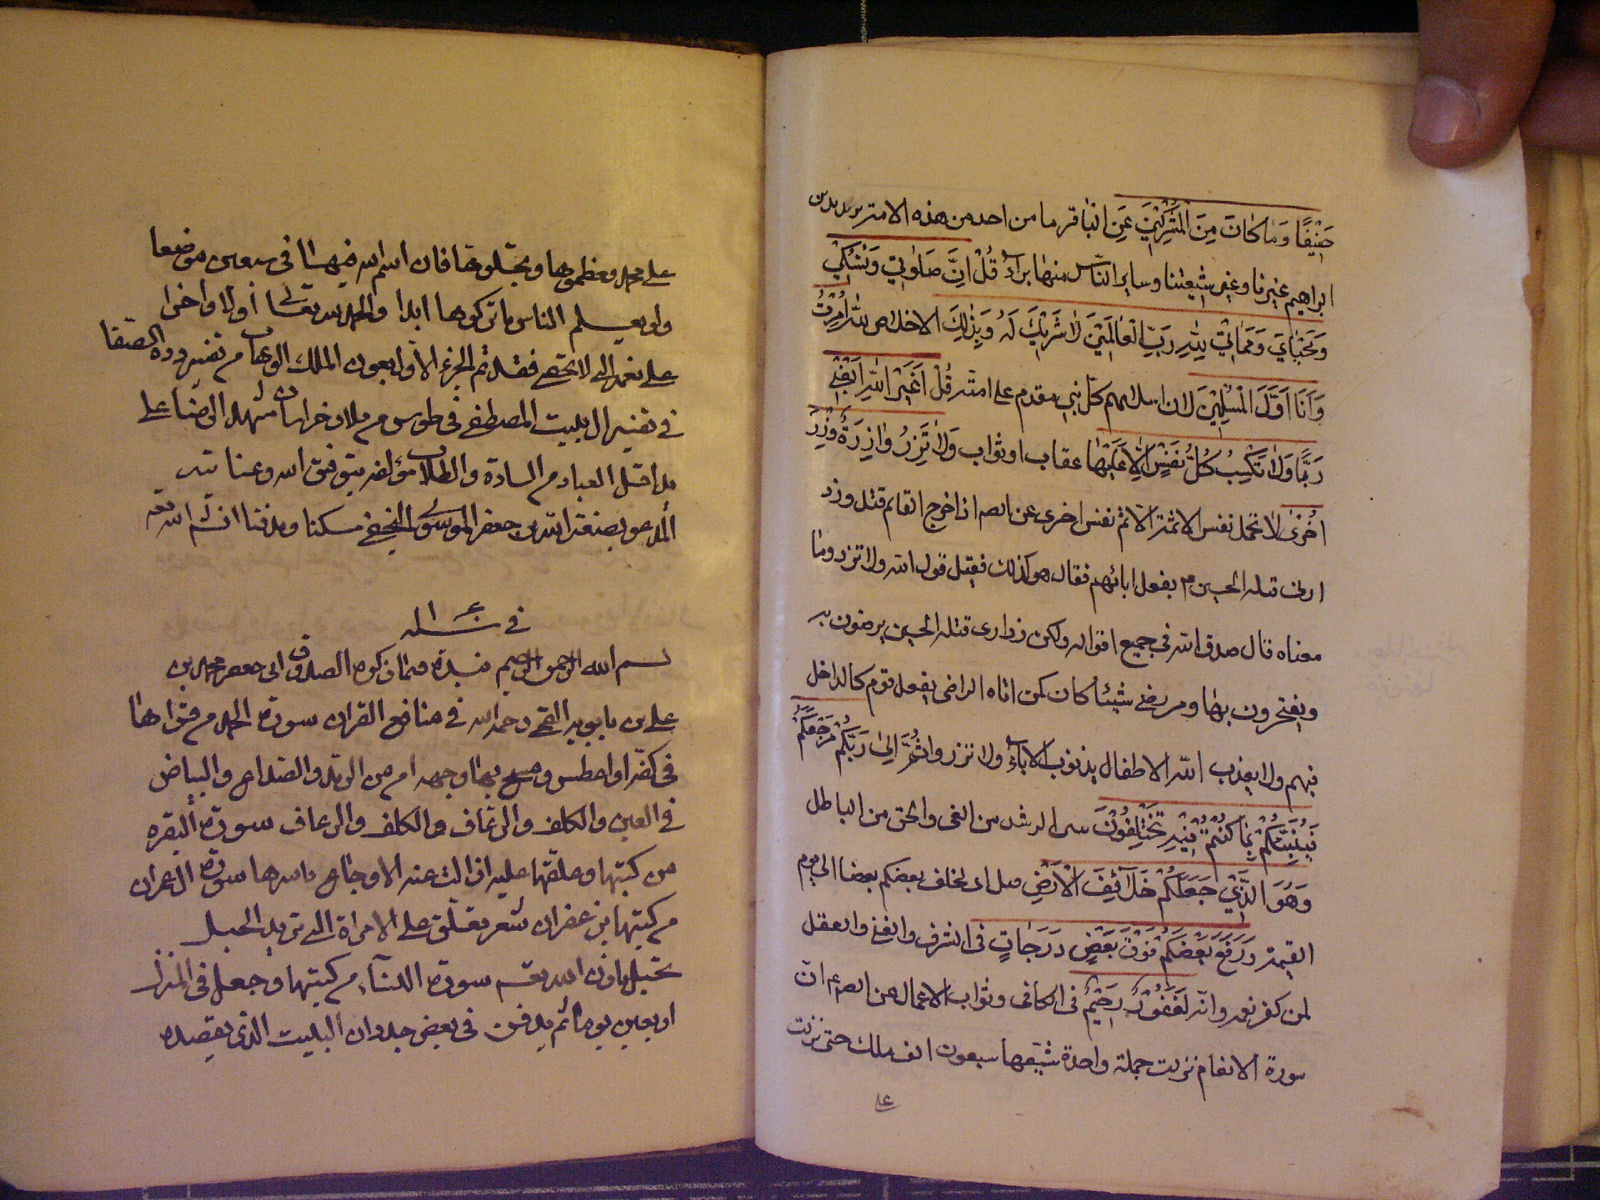 حَنِيفًا وَمَا كَانَ مِنَ الْمُشْرِكِينَ عن الباقر ما من احد من هذه الامة يدين بدين
ابراهيم غيرنا وغير شيعتنا وساير الناس منها براء قُلْ اِنَّ صَلَوٰتِي وَنُسُكِي
وَمَحْيَايَ وَمَمَاتِي لِلّٰهِ رَبِّ الْعَالَمِينَ لَا شَرِيكَ لَهُ وَبِذٰلِكَ الاخلاص لله اُمِرْتُ
وَاَنَا اَوَّلُ الْمُسْلِمِينَ لان اسلام كل نبي مقدم على امته قُلْ اَغَيْرَ اللّٰهِ اَبْغِي
رَبًّا وَلَا تَكْسِبُ كُلُّ نَفْسٍ اِلَّا عَلَيْهَا عقاب او ثواب وَلَا تَزِرُ وَازِرَةٌ وِزْرَ
اُخْرىٰ لا تحمل نفس الاثمة الا ثم نفس اخرى عن الرضا اذا خرج القائم قتل
قتلة الحسين بفعل ابائهم فقال هو كذلك فقيل قول الله ولا تزر وما
معناه قال صدق الله في جميع اقواله ولكن ذراري قتلة الحسين يرضون به
ويفتخرون بها ومن رضي شيئا كان كمن اتاه الراضي بفعل قوم كالداخل
فيهم ولا يعذب الله الاطفال بذنوب الاباء ولا تزر وا ثُمَّ اِلىٰ رَبِّكُمْ مَرْجِعُكُمْ
فَيُنَبِّئُكُمْ بِمَا كُنْتُمْ فِيهِ تَخْتَلِفُونَ من الرشد من الغي والحق من الباطل
وَهُوَ الَّذِي جَعَلَكُمْ خَلَائِفَ الْاَرْضِ يخلف بعضكم بعضا الى يوم
القيمة وَرَفَعَ بَعْضَكُمْ فَوْقَ بَعْضٍ دَرَجَاتٍ في الشرف والغنى والعقل
لمن كفر نعمه وانه لَغَفُورٌ رَحِيمٌ في الكافي وثواب الاعمال عن الص ان
سورة الانعام نزلت جملة واحدة شيعها سبعون الف ملك حتى نزلت
على
على محمد فعظموها وبجلوها فان اسم الله فيها في سبعين موضعا
ولو يعلم الناس ما تركوها ابدا والحمد لله تعالى اولا واخرا
على نعمه التي لا تحصى فقد تم الجزء الاول بعون الملك الوهاب من تفسير
في تفسير ال بيت المصطفى في طوس من بلاد خراسان مشهد الرضا على
يد اقل العباد من السادة والطلاب مؤلفه بتوفيق الله وعنايته
المدعو بصنعة الله بن جعفر الموسوي النجفي مسكنا ومدفنا انشاء الله تعه
في
بسم الله الرحمن الرحيم نبذة مما ذكره الصدوق ابي جعفر محمد بن
علي بن بابويه القمي رحمه الله في منافع القران سورة الحمد من قراها
في كفه او عطس ومسح بها وجهه امن من الرمد والصداع والبياض
في العين والكلف والرعاف والكلف والرعاف سورة البقره
من كتبها وعلقها عليه زالت عنه الاوجاع باسرها سورة ال عمران
من كتبها بزعفران شعر تعلق على الامراة التي تريد الحبل
تحبل باذن الله تعه سورة النساء من كتبها وجعل في المنزل
اربعين يوما ثم يدفن في بعض جدران البيت الذي يقصده